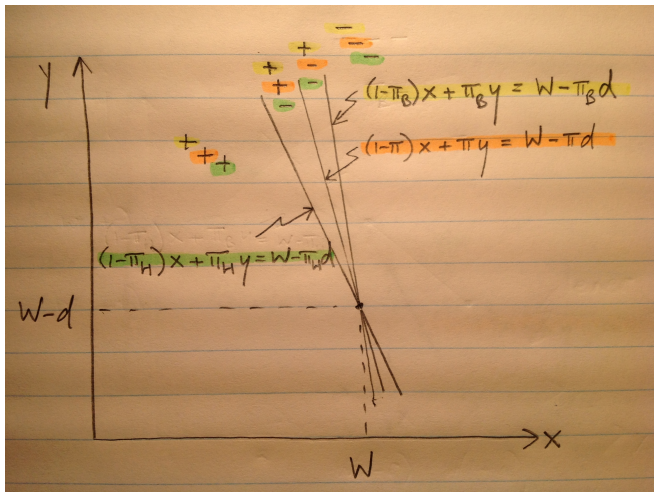 y
+ + -
+ - -
+ - -
(1-π_B)x + π_B y = W - π_B d
(1-π)x + πy = W - πd
+
+
+
(1-π_H)x + π_H y = W - π_H d
W-d
x
W